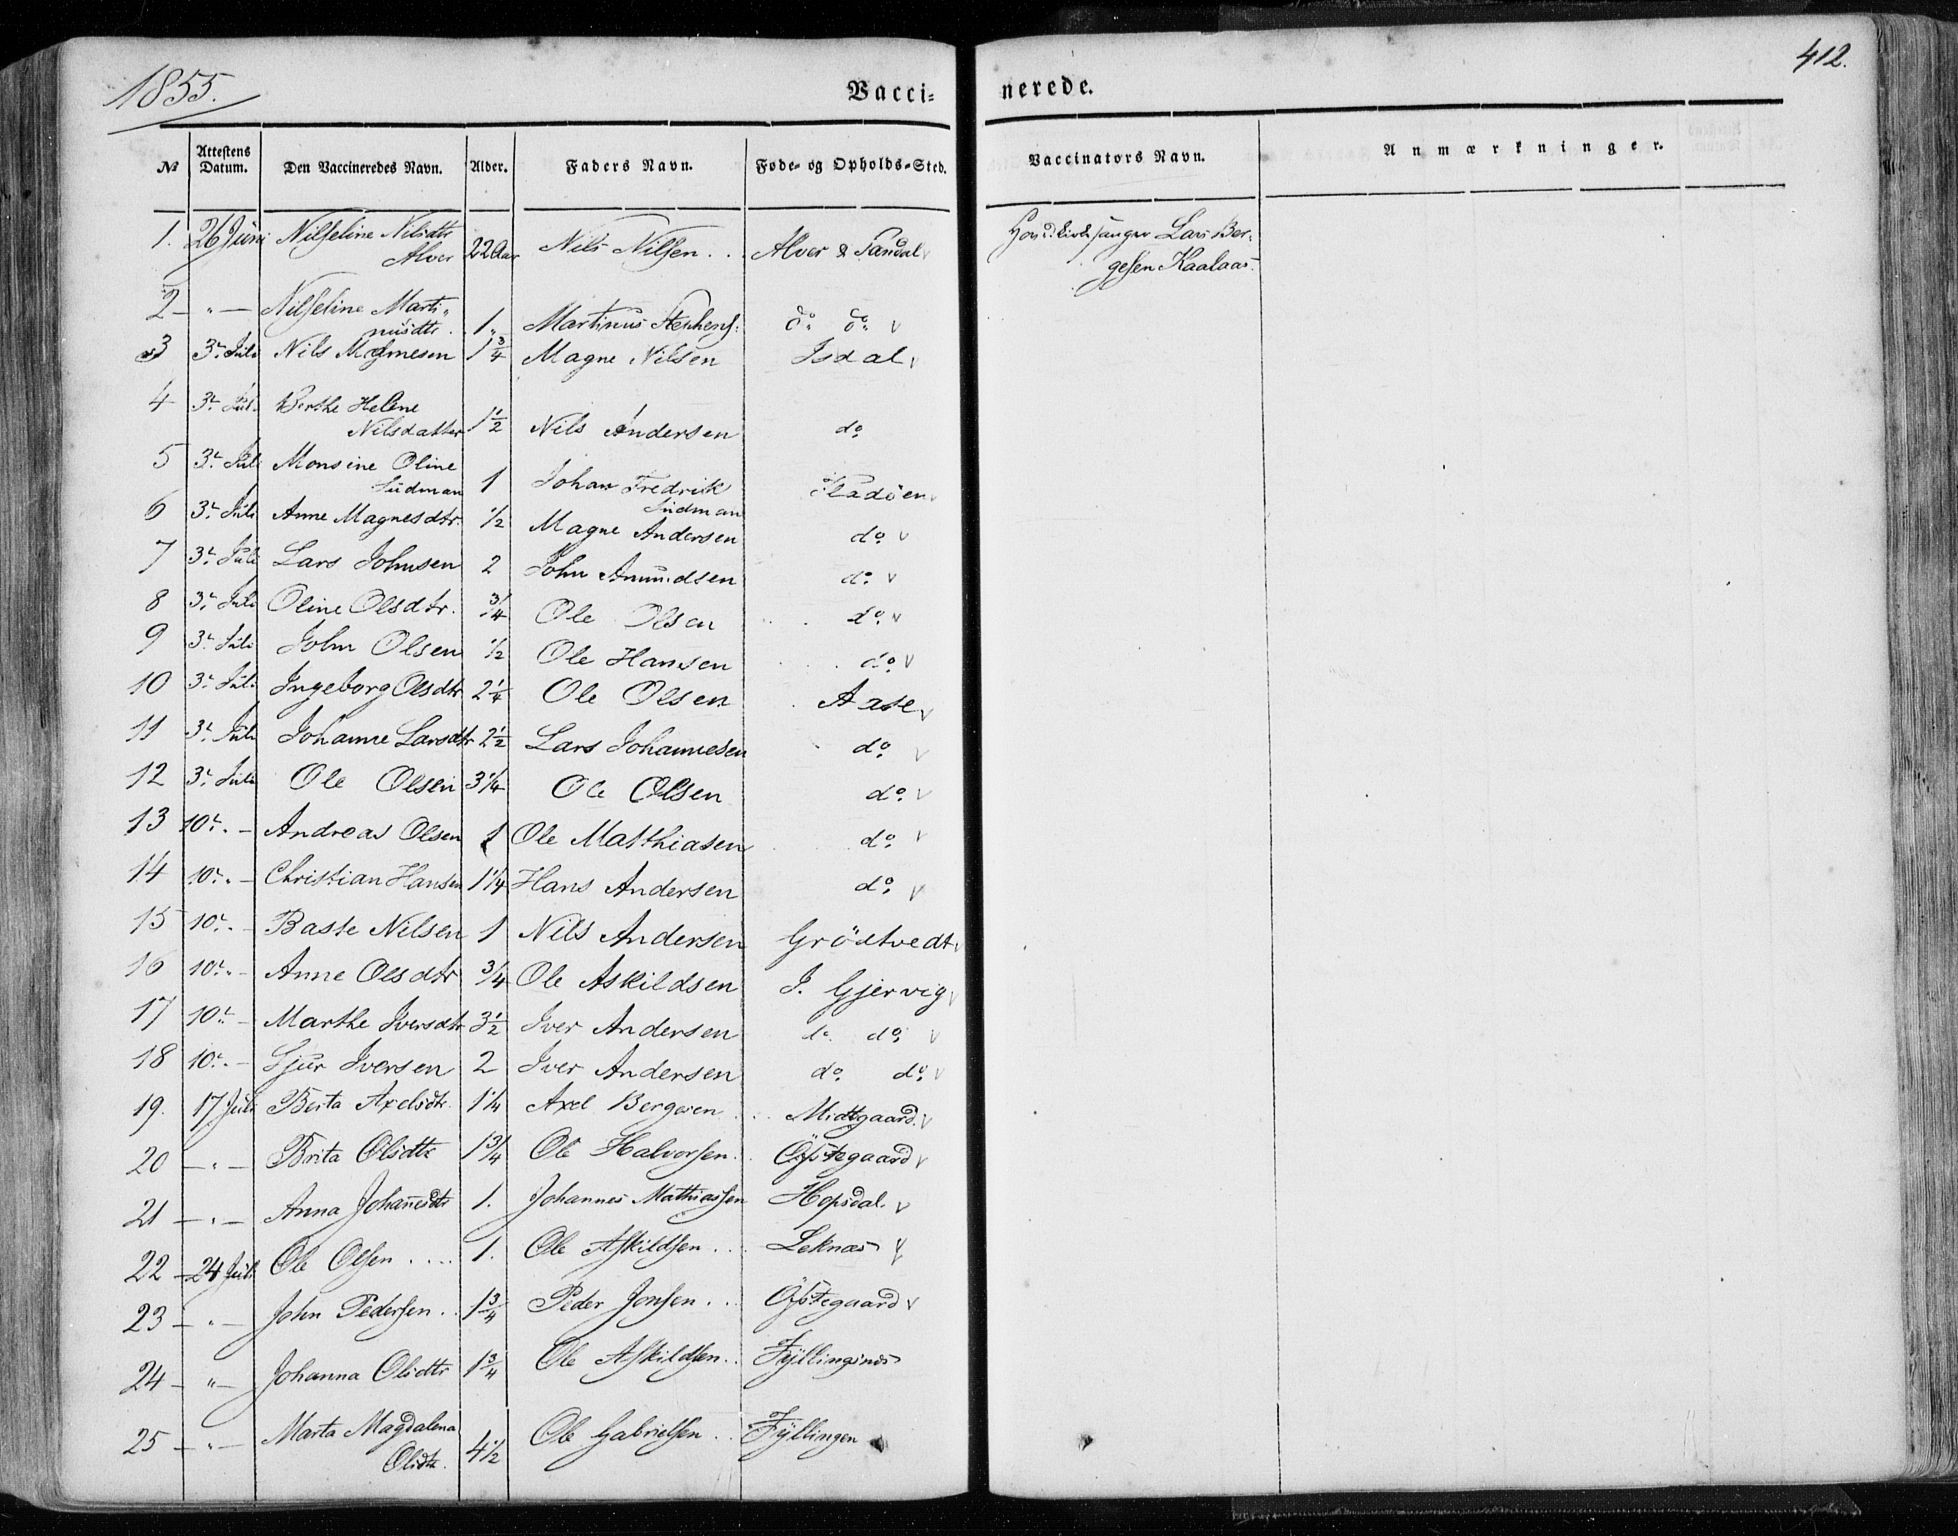 1855.
412.
Vacci- nerede.
№ Attestens Datum. Den Vaccineredes Navn. Alder. Faders Navn. Føde- og Opholds-Sted. Vaccinators Navn. Anmærkninger.
1. 26 Juni Nilseline Nilsdtr Alver 22 Aar Nils Nilsen . . Alver & Tandal v Lars Ber-
gesen Kaalaas.
2 - " - Nilseline Marti-
nusdtr. 1 " Martinus do do v
3 3die Juli Nils 1 3/4 Magne Nilsen Isdal v
4 3die Juli Berthe Helene
Nilsdatter 1 1/2 Nils Andersen do
5 3die Juli Monsine Oline
Sudman 1 Johan Fredrik
Sudman Fladöen v
6 3die Juli Anne Magnesdtr. 1/2 Magne Andersen do v
7 3die Juli Lars Johnsen 2 John Amundsen do v
8 3die Juli Oline Olsdtr. 3/4 Ole Olsen do v
9 3die Juli John Olsen 1/2 Ole Hansen do v
10 3die Juli Ingeborg Olsdtr 2 1/4 Ole Olsen Aase v
11 3die Juli Johanne Larsdtr 2 1/2 Lars Johannesen do v
12 3die Juli Ole Olsen 3 1/4 Ole Olsen do v
13 10de " - Andreas Olsen 1 Ole Matthiasen do v
14 10de " - Christian Hansen 1 1/4 Hans Andersen do v
15 10de " - Baste Nilsen 1 Nils Andersen Grödtvedt v
16 10de " - Anne Olsdtr 3/4 Ole Askildsen I. Gjervig v
17 10de - Marthe Iversdtr 3 1/2 Iver Andersen do do v
18 10de - Sjur Iversen 2 Iver Andersen do do v
19. 17 Juli Berta Axelsdtr. 1 1/4 Axel Bergesen . . Midtgaard v
20 - " - Brita Olsdtr 1 3/4 Ole Halvorsen . Öfstegaard v
21 - " - Anna Johannesdtr 1. Johannes Mathiassen Hopsdal. v
22 - 24 Juli Ole Olsen . . . . 1. Ole Askildsen . . Leknæs v
23 - " - John Pedersen . . 1 3/4 Peder Jonsen . . Öfstegaard v
24 - " - Johanna Olsdtr 1 3/4 Ole Askildsen . . Fyllingsnes
25 - " - Marta Magdalena
Olsdtr. 4 1/2 Ole Gabrielsen . . Fyllingen